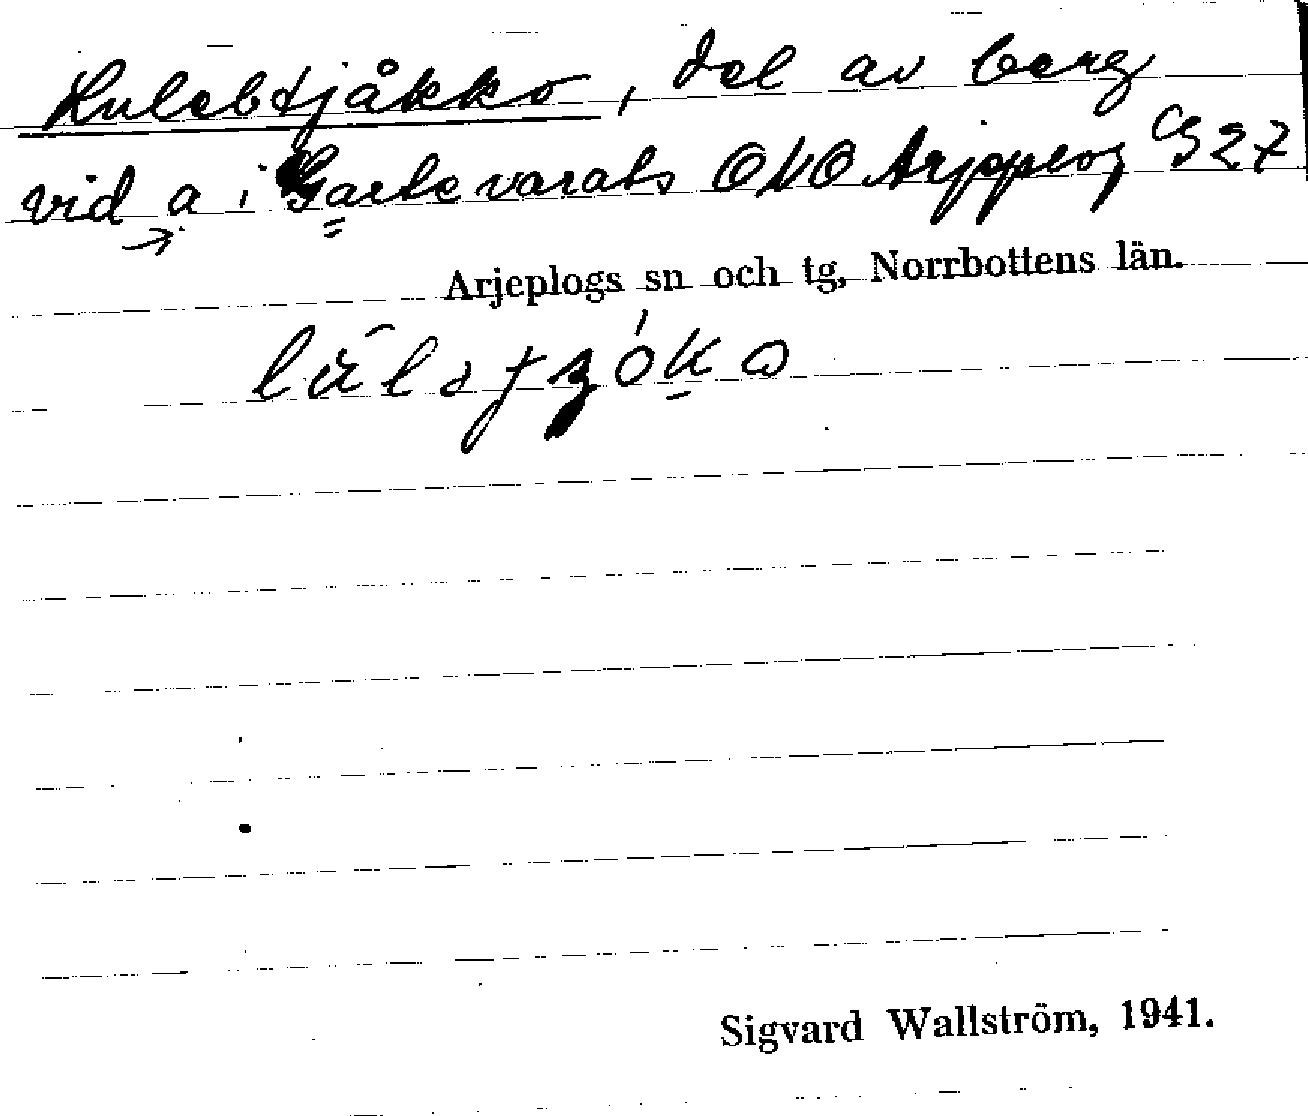 Lulebtjåkko, del av berg
vid a i Gartevarats ONO Arjeplog G27
Arjeplogs sn och tg, Norrbottens län.
Sigvard Wallström, 1941.